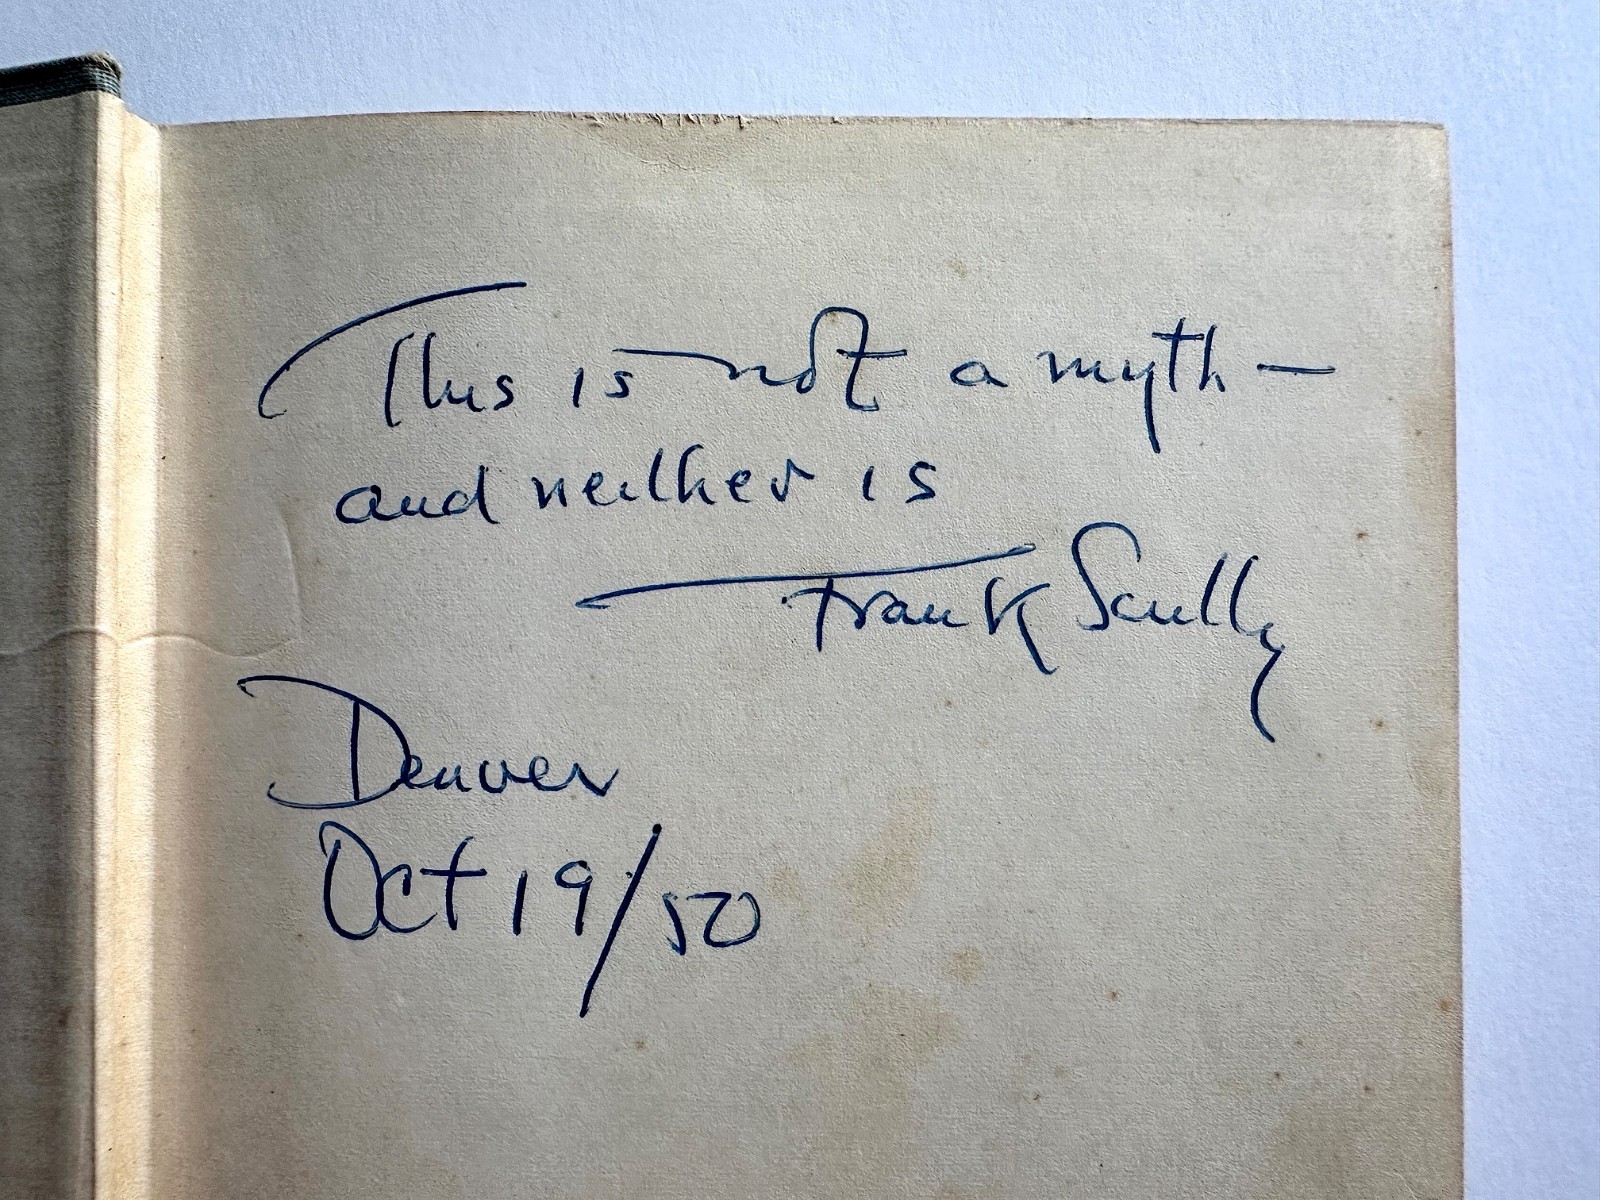 This is not a myth —
and neither is
Frank Scully
Denver
Oct 19/50